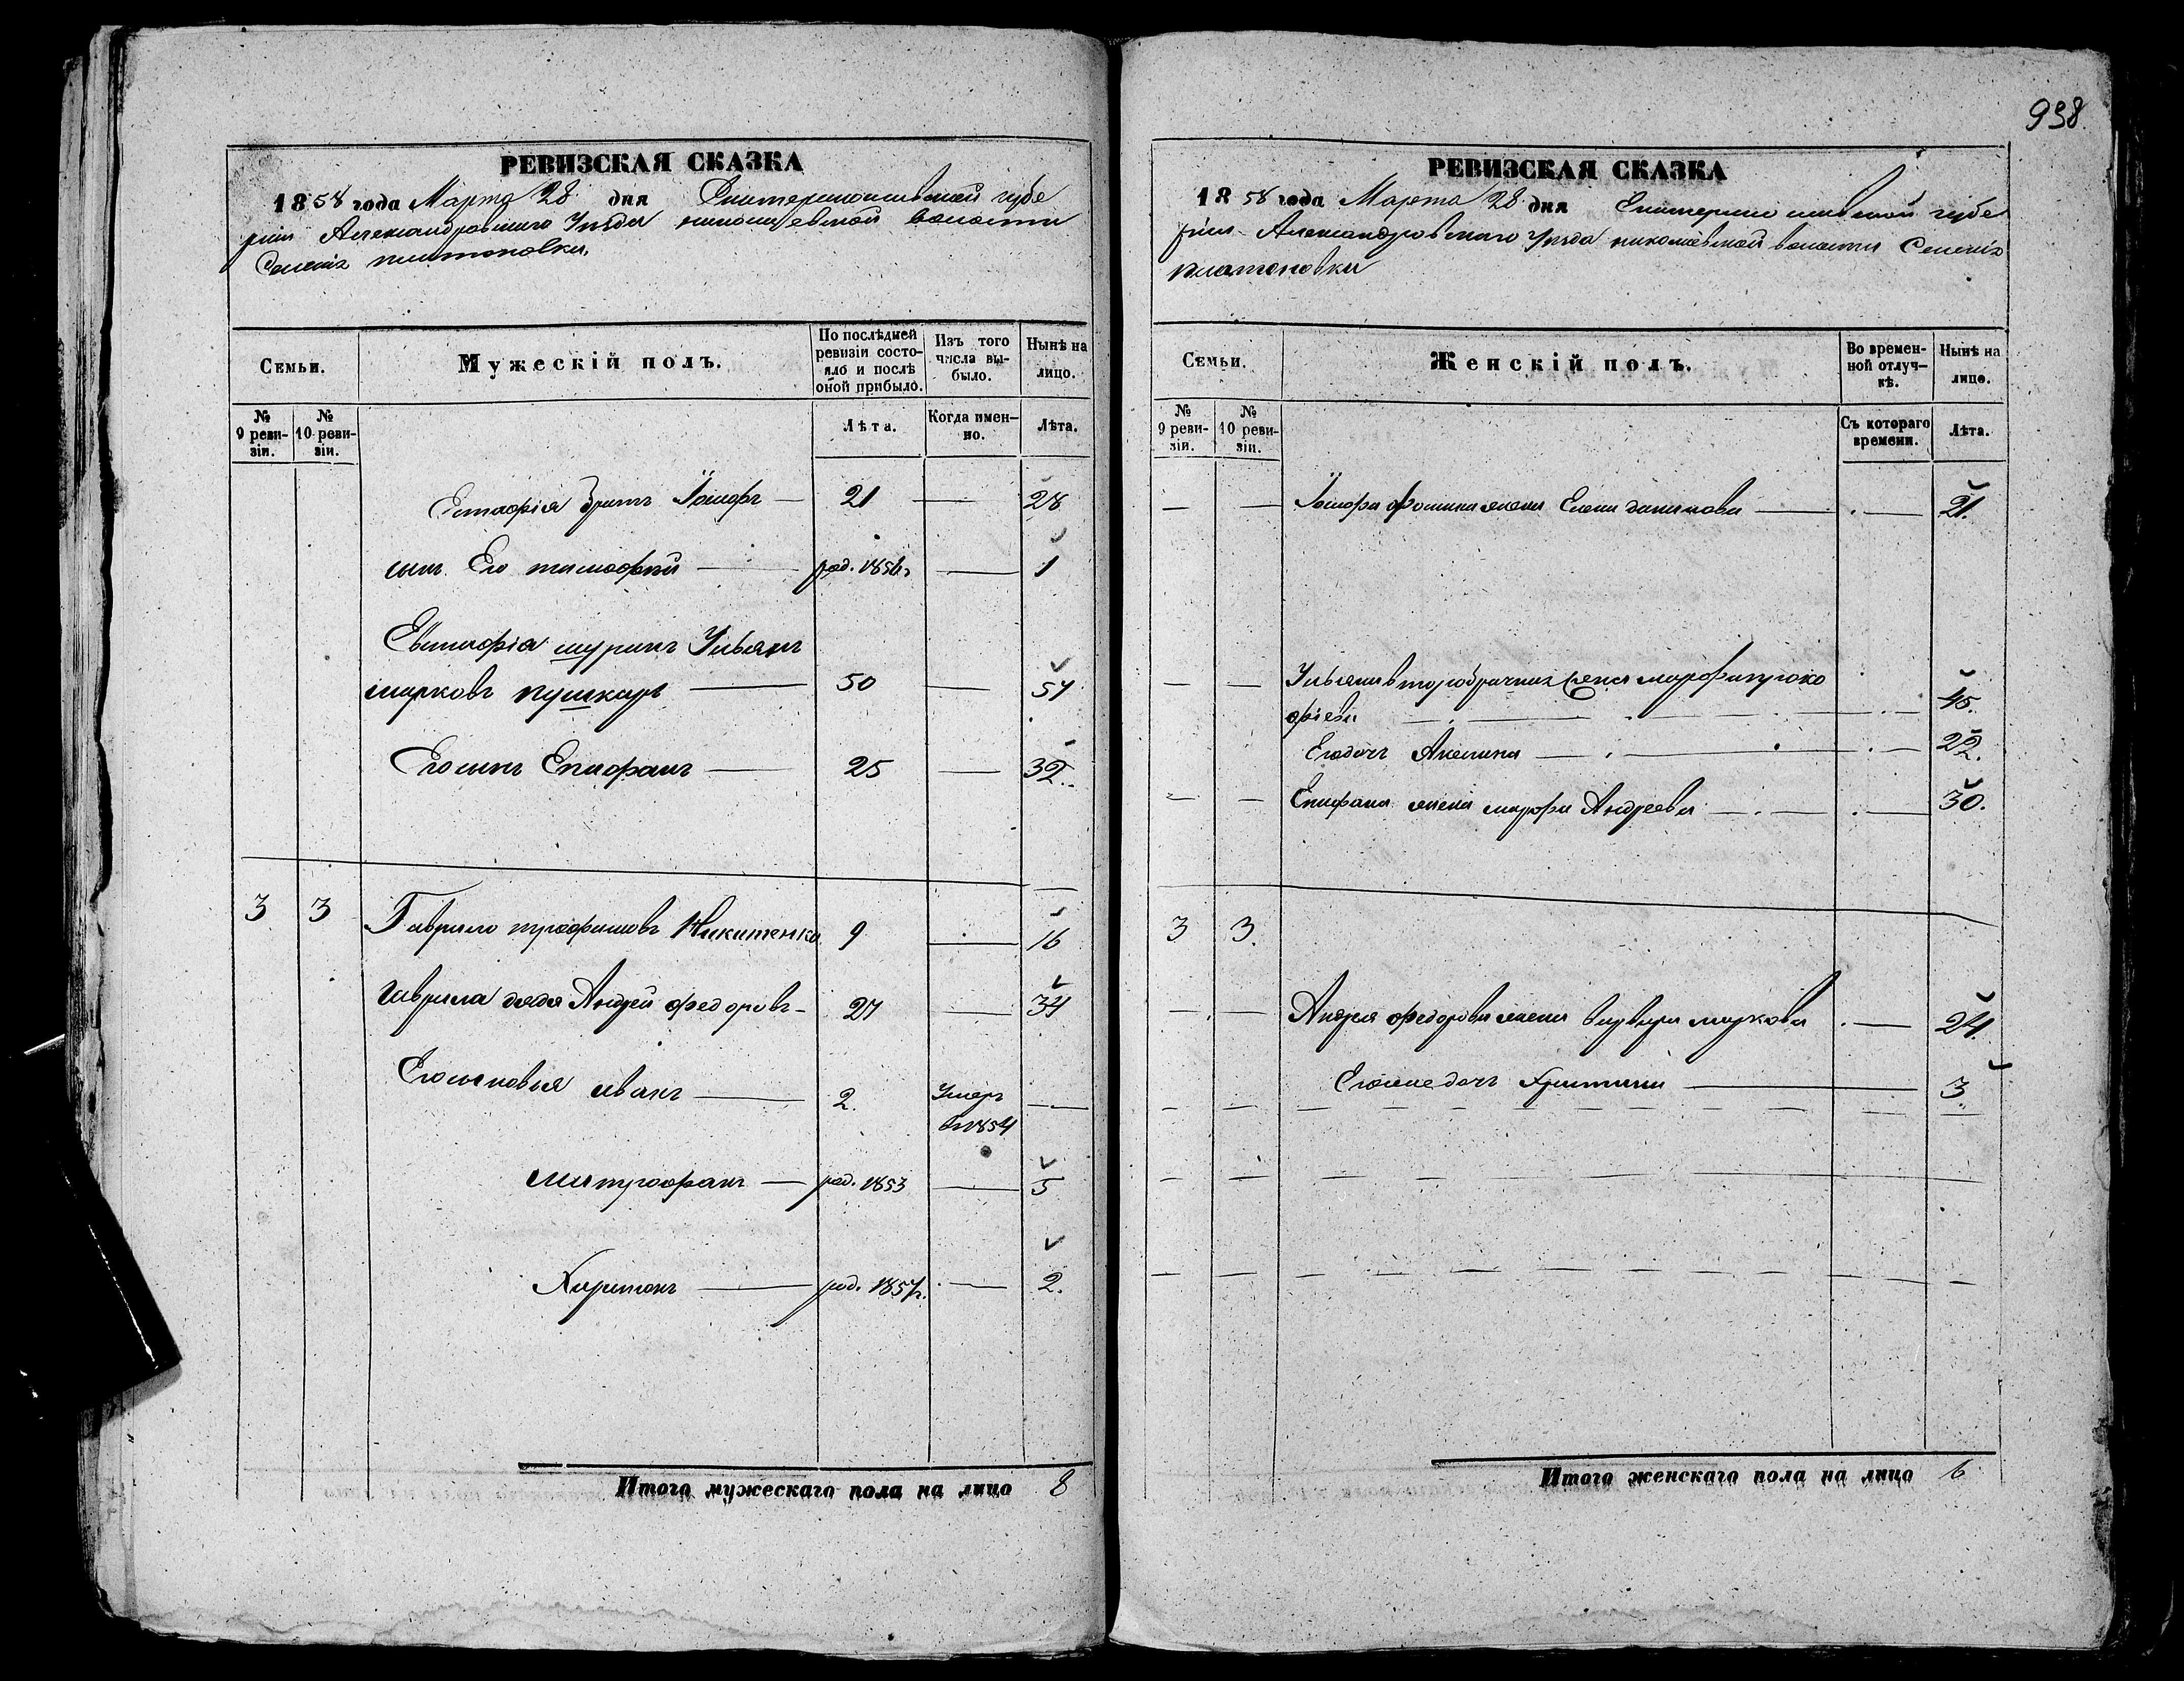 938.
РЕВИЗСКАЯ СКАЗКА
1858 года Марта 28 дня Екатеринославской губе
рнiи Александровского Уезда николаевской волости
Селенiя платоновки.
Семьи.
Мужескiй полъ.
По послѣдней ревизiи состояло и послѣ оной прибыло.
Изъ того числа выбыло.
Нынѣ на лицо.
№ 9 ревизiи.
№ 10 ревизiи.
Лѣта.
Когда именно.
Лѣта.
Естафiя братъ Iосифъ — 21 — 28
сынъ Его тимофей — род. 1856г — 1
Евстафiя шуринъ Ульянъ
марковъ пушкарь — 50 — 57
Его сынъ Епифанъ — 25 — 32.
3 3 Гаврило трофимовъ Никитенко 9 — 16
Гаврила дядя Андрей федоровъ — 27 — 34
Его сыновья иванъ — 2. Умеръ —
в 1854
митрофанъ — род. 1853 — 5
Харитонъ — род. 1857г. — 2.
Итого мужескаго пола на лицо 8
РЕВИЗСКАЯ СКАЗКА
1858 года Марта 28 дня Екатеринославской губе
рнiи Александровского Уезда николаевской волости Селенiя
платоновки
Семьи.
Женскiй полъ.
Во временной отлучкѣ.
Нынѣ на лицо.
№ 9 ревизiи.
№ 10 ревизiи.
Съ котораго времени.
Лѣта.
— — Iосифа фомина жена Елена данилова — 21.
— — Ульяна второбрачная жена марфа проко
фiева — 45.
Его дочь Акелина — 22.
— — Епифана жена марфа Андреева — 30.
3 3.
— — Андрея федорова жена варвара маркова — 24.
Его же дочь Христина — 3.
Итого женскаго пола на лицо 6